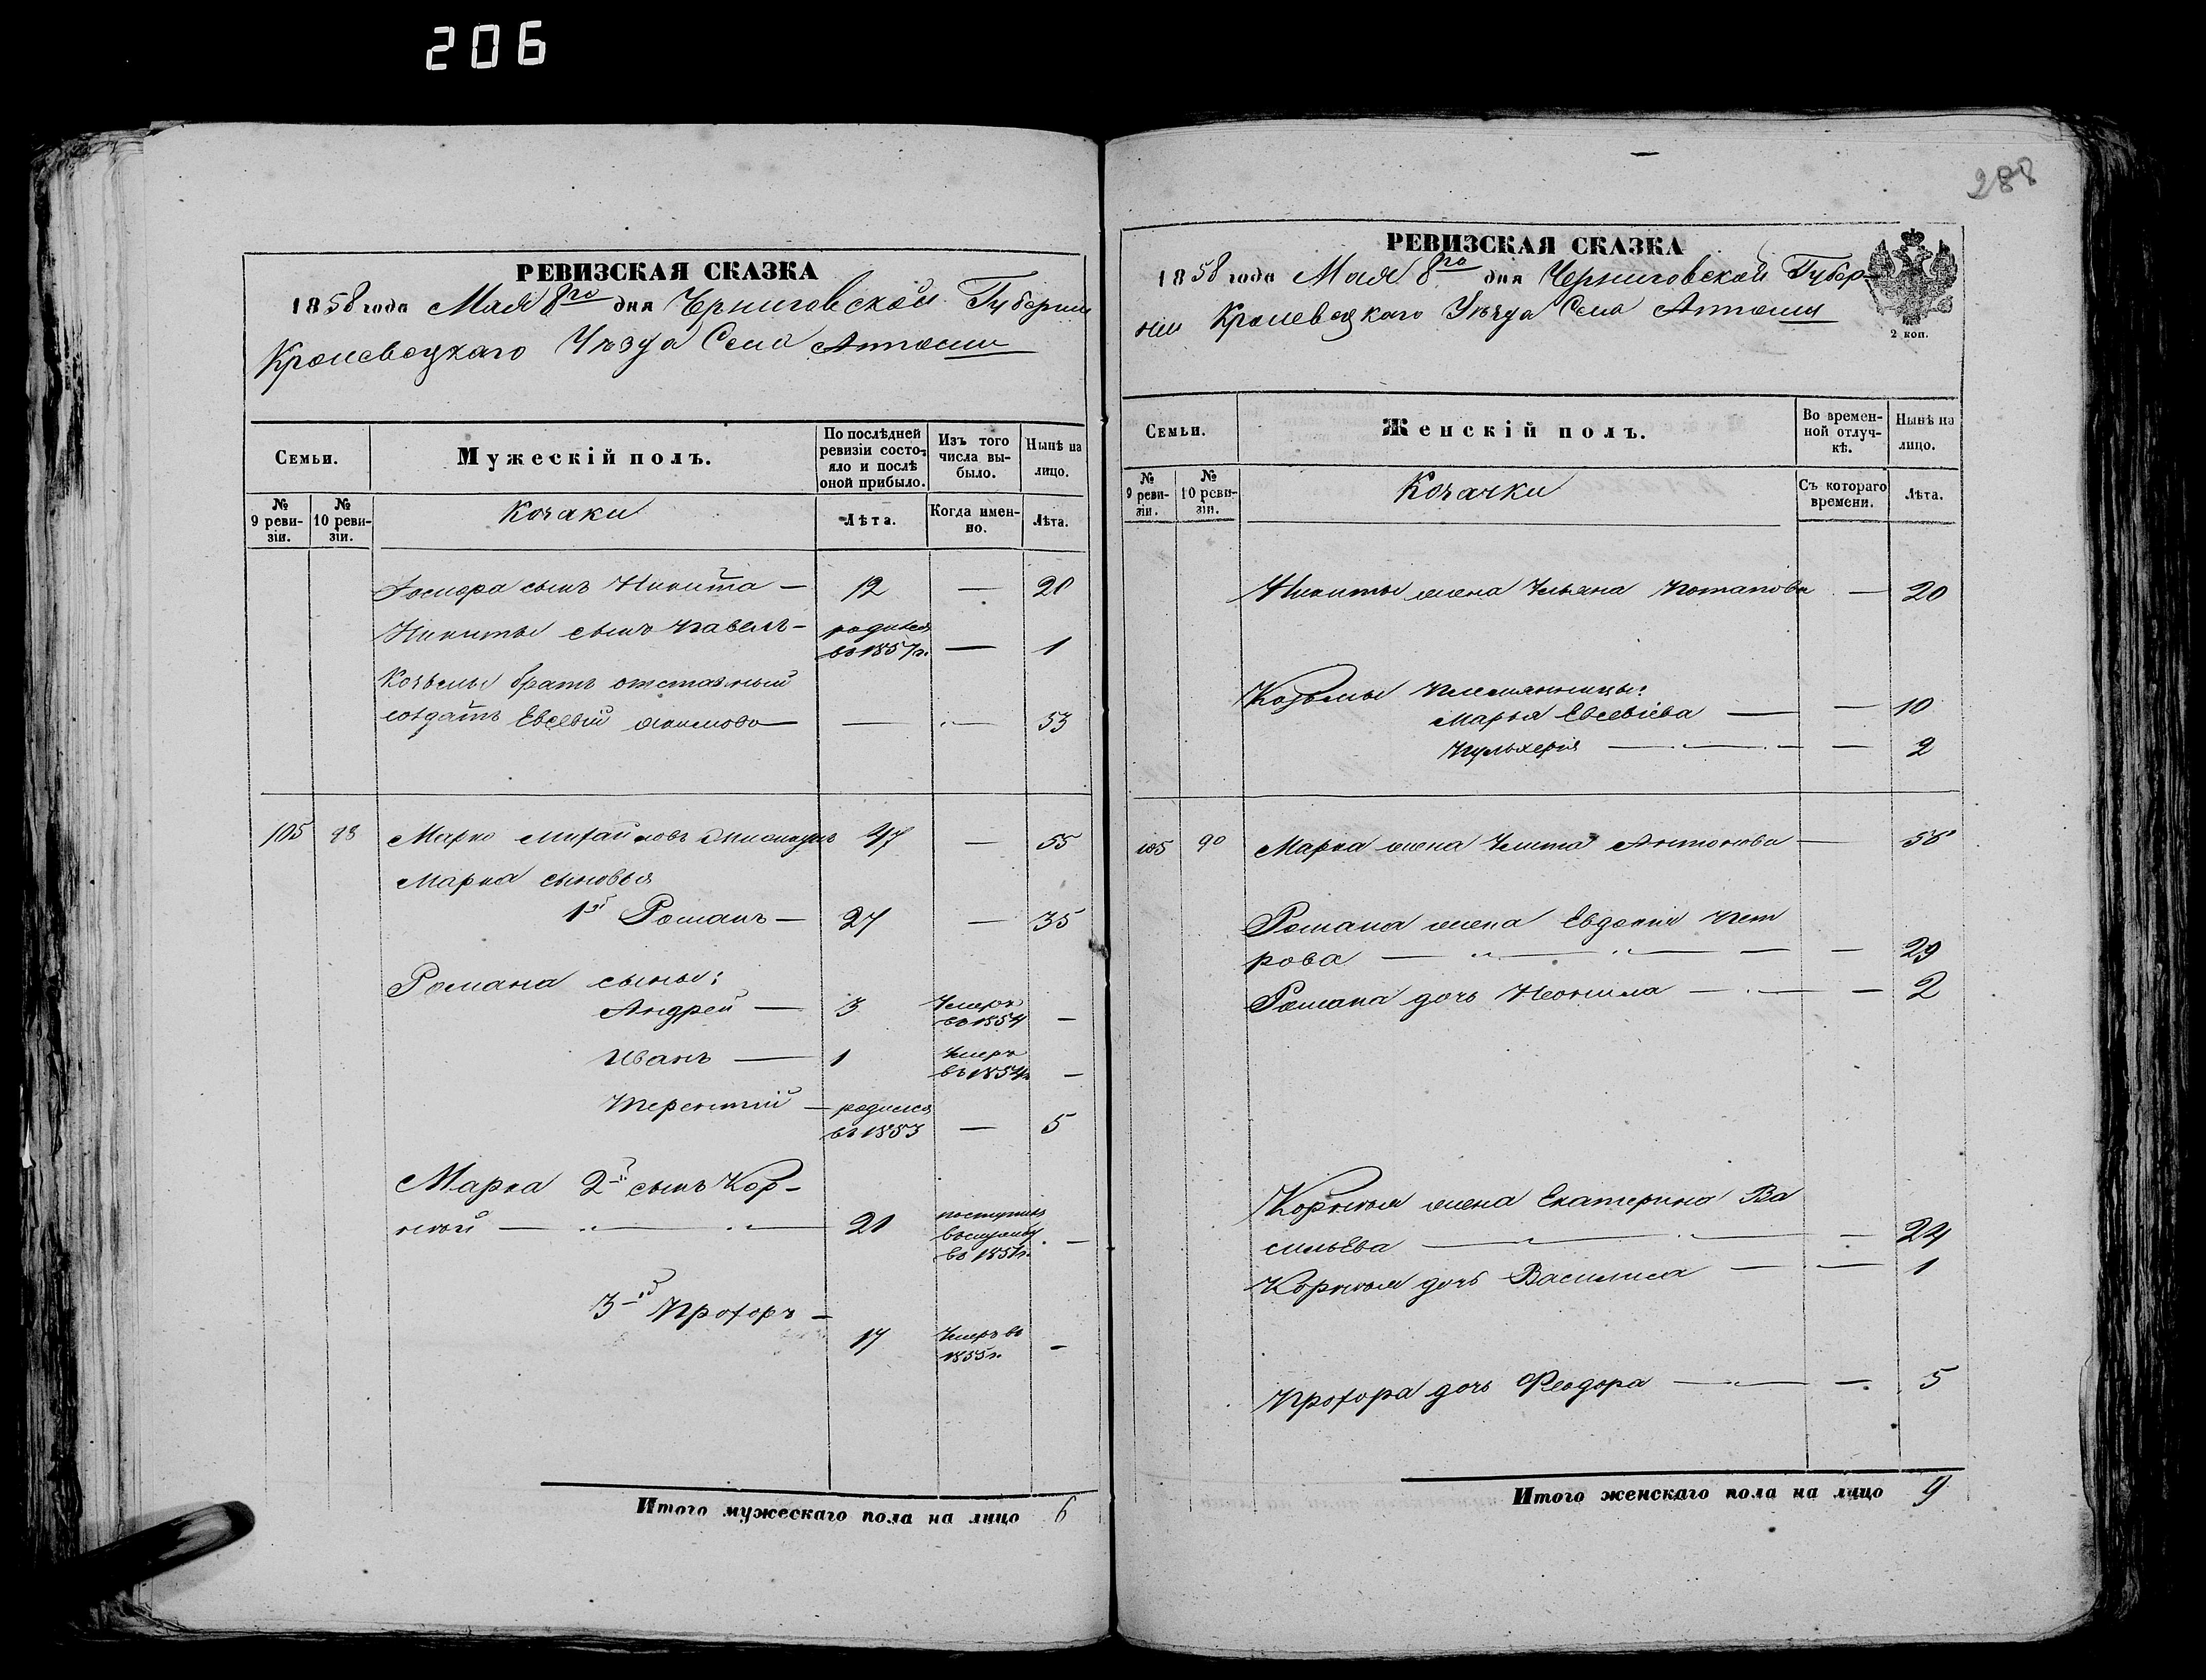 206
288
РЕВИЗСКАЯ СКАЗКА
1858 года Мая 8го дня Черниговской Губернии
Кролевецкаго Уѣзда Села
Семьи.
Мужескій полъ.
По послѣдней ревизіи состояло и послѣ оной прибыло.
Изъ того числа выбыло.
Нынѣ на лицо.
№ 9 ревизіи.
№ 10 ревизіи.
Козаки
Лѣта.
Когда именно.
Лѣта.
сынъ Никита — 12 — 20
Никиты сынъ Павелъ — родился
во 1857г. — 1
Козьмы братъ отставный
солдатъ Евсевій — — 53
105 98 Марко Михайловъ 47 — 55
Марка сыновья
1й Романъ — 27 — 35
Романа сыны:
Андрей — 3 Умеръ
во 1854 —
Иванъ — 1 Умеръ
въ 1854г. —
Терентій — родился
въ 1853 — 5
Марка 2й сынъ Кор-
нѣй — 21 поступилъ
въ службу
во 1851г. —
3й Прохоръ —
17 Умеръ во
1855г. —
Итого мужескаго пола на лицо 6
РЕВИЗСКАЯ СКАЗКА
1858 года Мая 8го дня Черниговской Губер-
нии Кролевецкаго Уѣзда Села
2 коп.
Семьи.
Женскій полъ.
Во временной отлучкѣ.
Нынѣ на лицо.
№ 9 ревизіи.
№ 10 ревизіи.
Козачки
Съ котораго времени.
Лѣта.
Никиты жена Ульяна Потапова — 20
Козьмы племянницы:
Марья Евсевіева — — 10
Пульхерія — — 2
105 90 Марка жена Улита Антонова —
Романа жена Евдокія Пет
рова — — 29
Романа дочь Неонила — — 2
Корнѣя жена Екатерина Ва
сильева — — 24
Корнѣя дочь Василиса — — 1
Прохора дочь Феодора — — 5
Итого женскаго пола на лицо 9